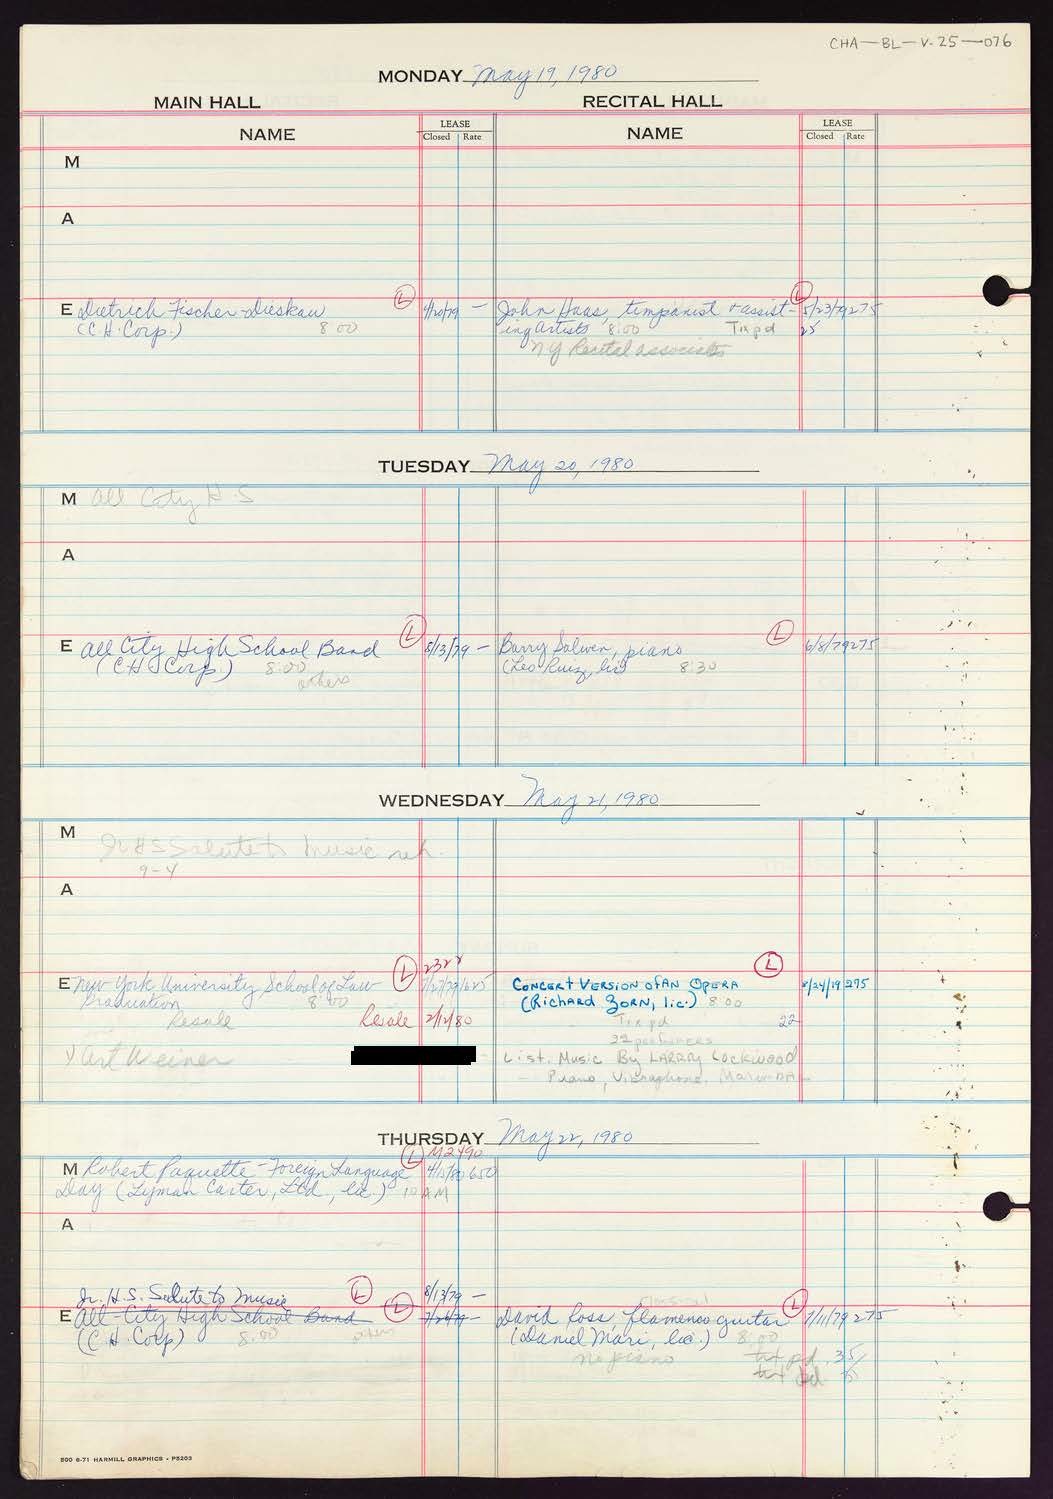 CHA-BL-V-25-076
MONDAY May 19, 1980
MAIN HALL RECITAL HALL
NAME LEASE Closed Rate NAME LEASE Closed Rate
M
A
E Dietrich Fischer-Dieskau L 4/20/79 - John Haas, timpanist + assist- L 5/23/79 275
(C.H. Corp.) 8 00 ing Artists 8:00 Tix pd 25
NY Recital associates
TUESDAY May 20, 1980
M All City H.S
A
E All City High School Band L 8/13/79 - Barry Salwen, piano L 6/8/79 275
(C.H. Corp.) 8:00 (Leo Ruiz, lic) 8:30
others
WEDNESDAY May 21, 1980
M Jr HS Salute to Music reh.
9-4
A
E New York University School of Law L 2322 7/27/79 625 Concert Version of an Opera L 8/24/79 275
Graduation 8:00 (Richard Zorn, lic.) 8:00
Resale Resale 2/12/80 Tix pd 22
Art Weiner List. Music By Larry Lockwood
Piano, Vibraphone, Marimba
THURSDAY May 22, 1980
L M2490
M Robert Paquette - Foreign Language 4/15/80 650
Day (Lyman Carter, Ltd., lic.) 10 AM
A
Jr. H.S. Salute to Music L 8/13/79 -
classical
E All-City High School Band L David Ross, flamenco guitar L 7/11/79 275
(C.H. Corp) 8:00 others (Daniel Mari, lic.) 8:00
no piano txt pd. 35
500 6-71 HARMILL GRAPHICS - P5203